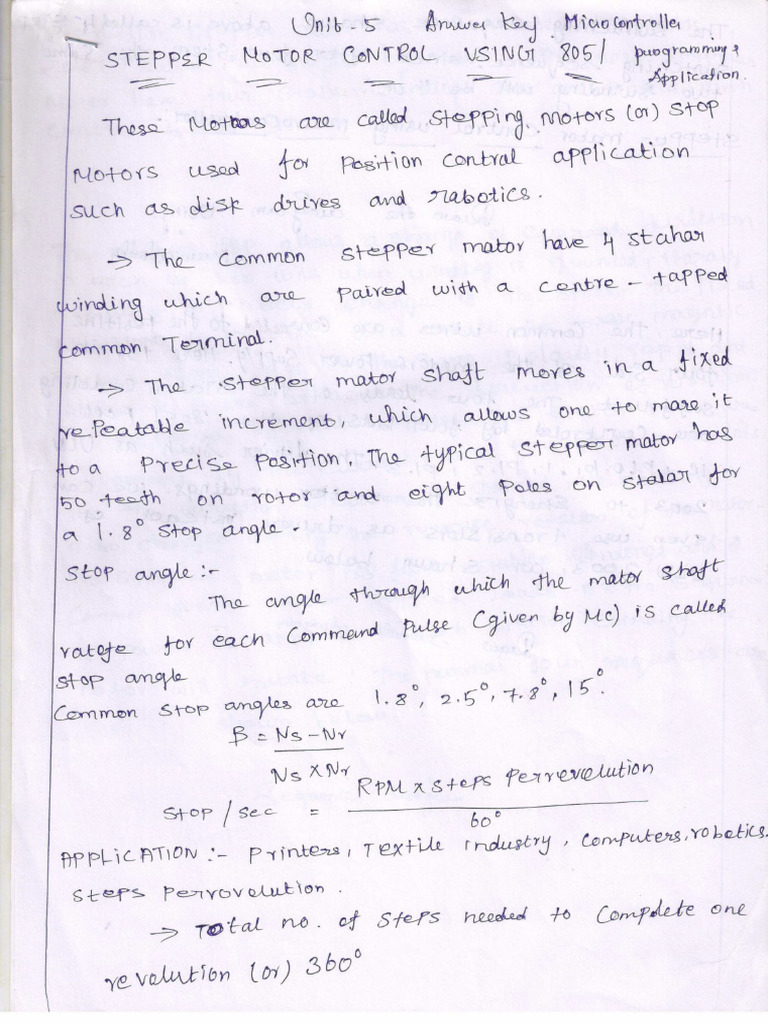 Unit-5 Answer Key Microcontroller
STEPPER MOTOR CONTROL USING 8051 programming &
Application.
These Motors are called Stepping Motors (or) Stop
Motors used for Position Contral application
such as disk drives and rabotics.
-> The Common Stepper mator have 4 stahar
winding which are Paired with a centre - tapped
common Terminal.
-> The Stepper mator shaft moves in a fixed
repeatable increment, which allows one to mare it
to a Precise Position. The typical Stepper mator has
50 teeth on rotor and eight Poles on stalar for
a 1.8° Stop angle.
Stop angle :-
The angle through which the mator shaft
ratefe for each Command Pulse (given by Mc) is called
stop angle
Common Stop angles are 1.8°, 2.5°, 7.8°, 15°.
B = Ns - Nr
Ns x Nr
RPM x Steps Perrevelution
Stop / sec =
60°
APPLICATION :- Printers, Textile Industry, Computers, robotics.
Steps Perrovelution.
-> Total no. of steps needed to Compdete one
revalution (or) 360°